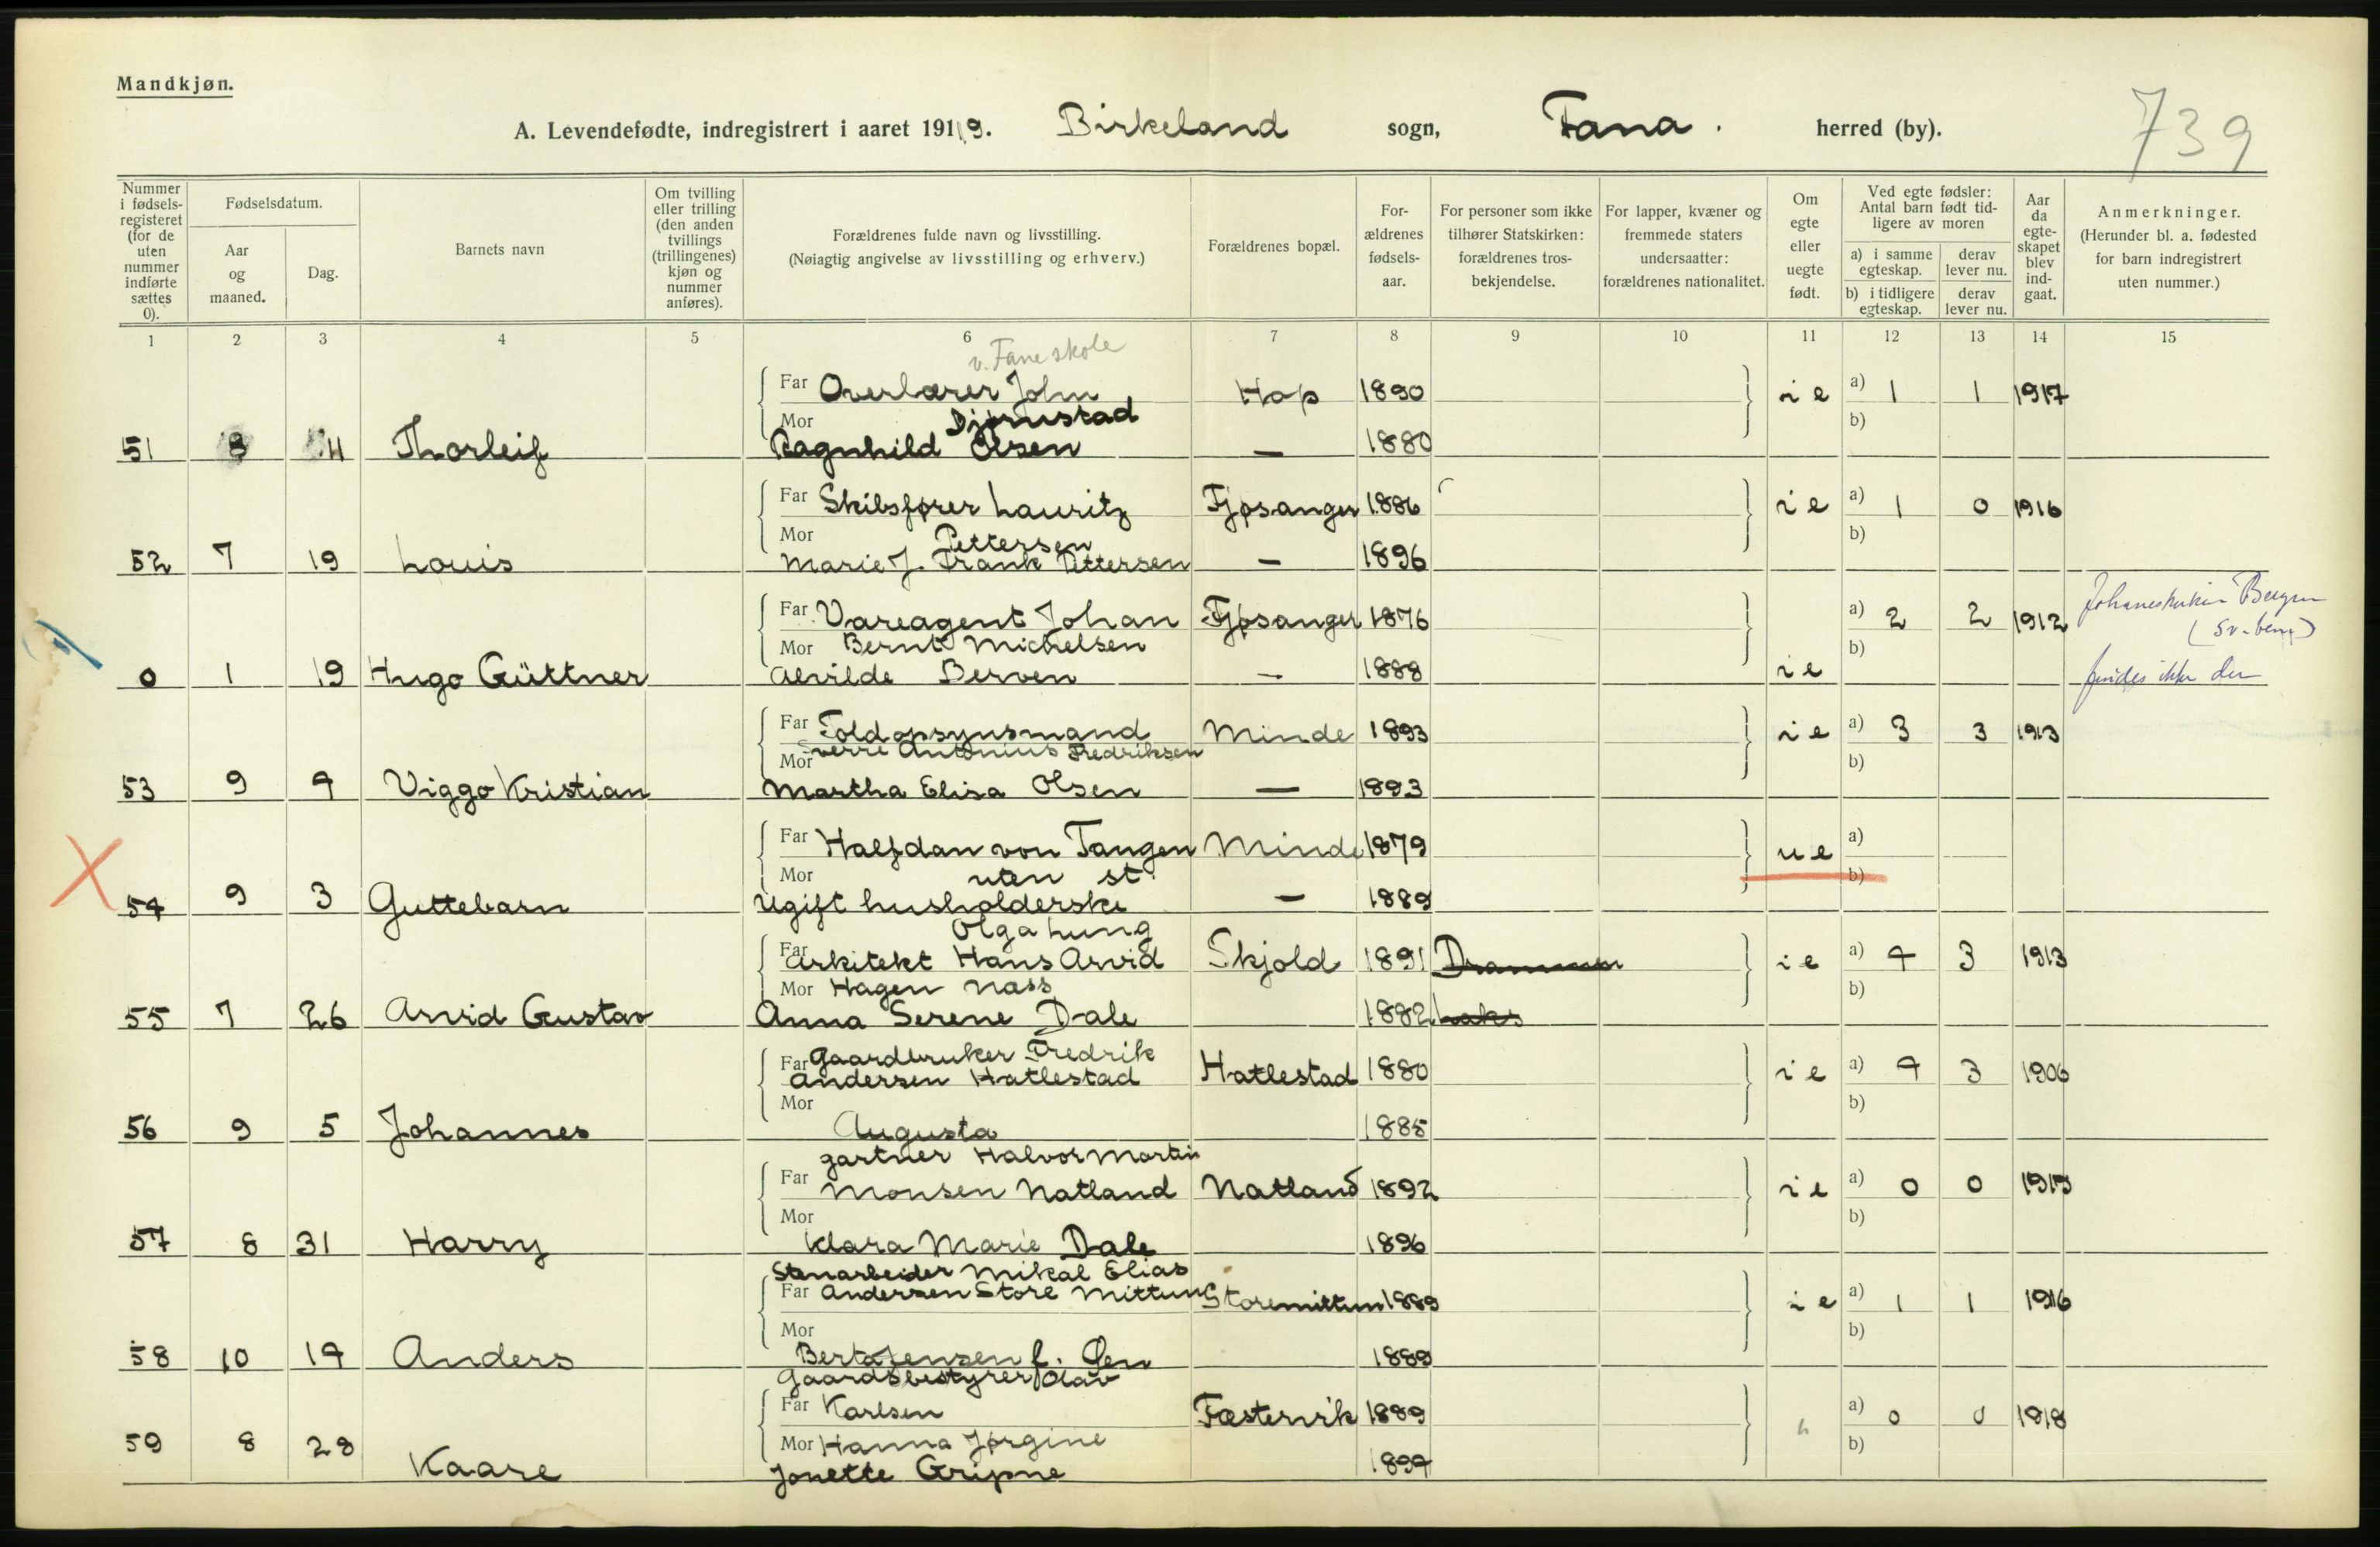 Mandkjøn.
A. Levendefødte, indregistrert i aaret 1919. Birkeland sogn, Fana. herred (by).
739
Nummer i fødsels-registeret (for de uten nummer indførte sættes 0).
Fødselsdatum.
Aar og maaned.
Dag.
Barnets navn
Om tvilling eller trilling (den anden tvillings (trillingenes) kjøn og nummer anføres).
Forældrenes fulde navn og livsstilling.
(Nøiagtig angivelse av livsstilling og erhverv.)
Forældrenes bopæl.
For-ældrenes fødsels-aar.
For personer som ikke tilhører Statskirken: forældrenes tros-bekjendelse.
For lapper, kvæner og fremmede staters undersaatter: forældrenes nationalitet.
Om egte eller uegte født.
Ved egte fødsler: Antal barn født tid-ligere av moren
a) i samme egteskap.
derav lever nu.
b) i tidligere egteskap.
derav lever nu.
Aar da egte-skapet blev ind-gaat.
Anmerkninger.
(Herunder bl. a. fødested for barn indregistrert uten nummer.)
1 2 3 4 5 6 7 8 9 10 11 12 13 14 15
v. Fane skole
Far Overlærer John Hap 1890 i e a) 1 1 1917
Mor Djørnstad b)
51 8 4 Thorleif Ragnhild Olsen — 1880
Far Skibsfører Lauritz Fjøsanger 1886 i e a) 1 0 1916
Mor Pettersen b)
52 7 19 Louis Marie J. Frank Pettersen — 1896
Far Vareagent Johan Fjøsanger 1876 a) 2 2 1912 Johaneskirken Bergen
Mor Bernt Michelsen b)
0 1 19 Hugo Güttner Alvilde Berven — 1888 i e findes ikke der
Far Toldopsynsmand Minde 1893 i e a) 3 3 1913
Sverre Antonius Fredriksen
Mor b)
53 9 4 Viggo Kristian Martha Elisa Olsen — 1893
Far Halfdan von Tangen Minde 1879 u e a)
Mor uten st. b)
54 9 3 Guttebarn Ugift husholderske — 1889
Olga Lung
Far Arkitekt Hans Arvid Skjold 1891 Drammen i e a) 4 3 1913
Mor Hagen Nass b)
55 7 26 Arvid Gustav Anna Serene Dale 1882
Far Gaardbruker Fredrik
Andersen Hatlestad Hatlestad 1880 i e a) 4 3 1906
Mor b)
56 9 5 Johannes Augusta 1885
gartner Halvor Martin
Far Monsen Natland Natland 1892 i e a) 0 0 1919
Mor b)
57 8 31 Harry Klara Marie Dale 1896
Stenarbeider Mikal Elias
Far Andersen Store Mittun Storemittun 1889 i e a) 1 1 1916
Mor b)
58 10 14 Anders Berta Jensen f. Øen 1889
Gaardsbestyrer Olav
Far Karlsen Fæstervik 1889 " a) 0 0 1918
Mor Hanna Jørgine b)
59 8 28 Kaare Jonette Gripne 1894